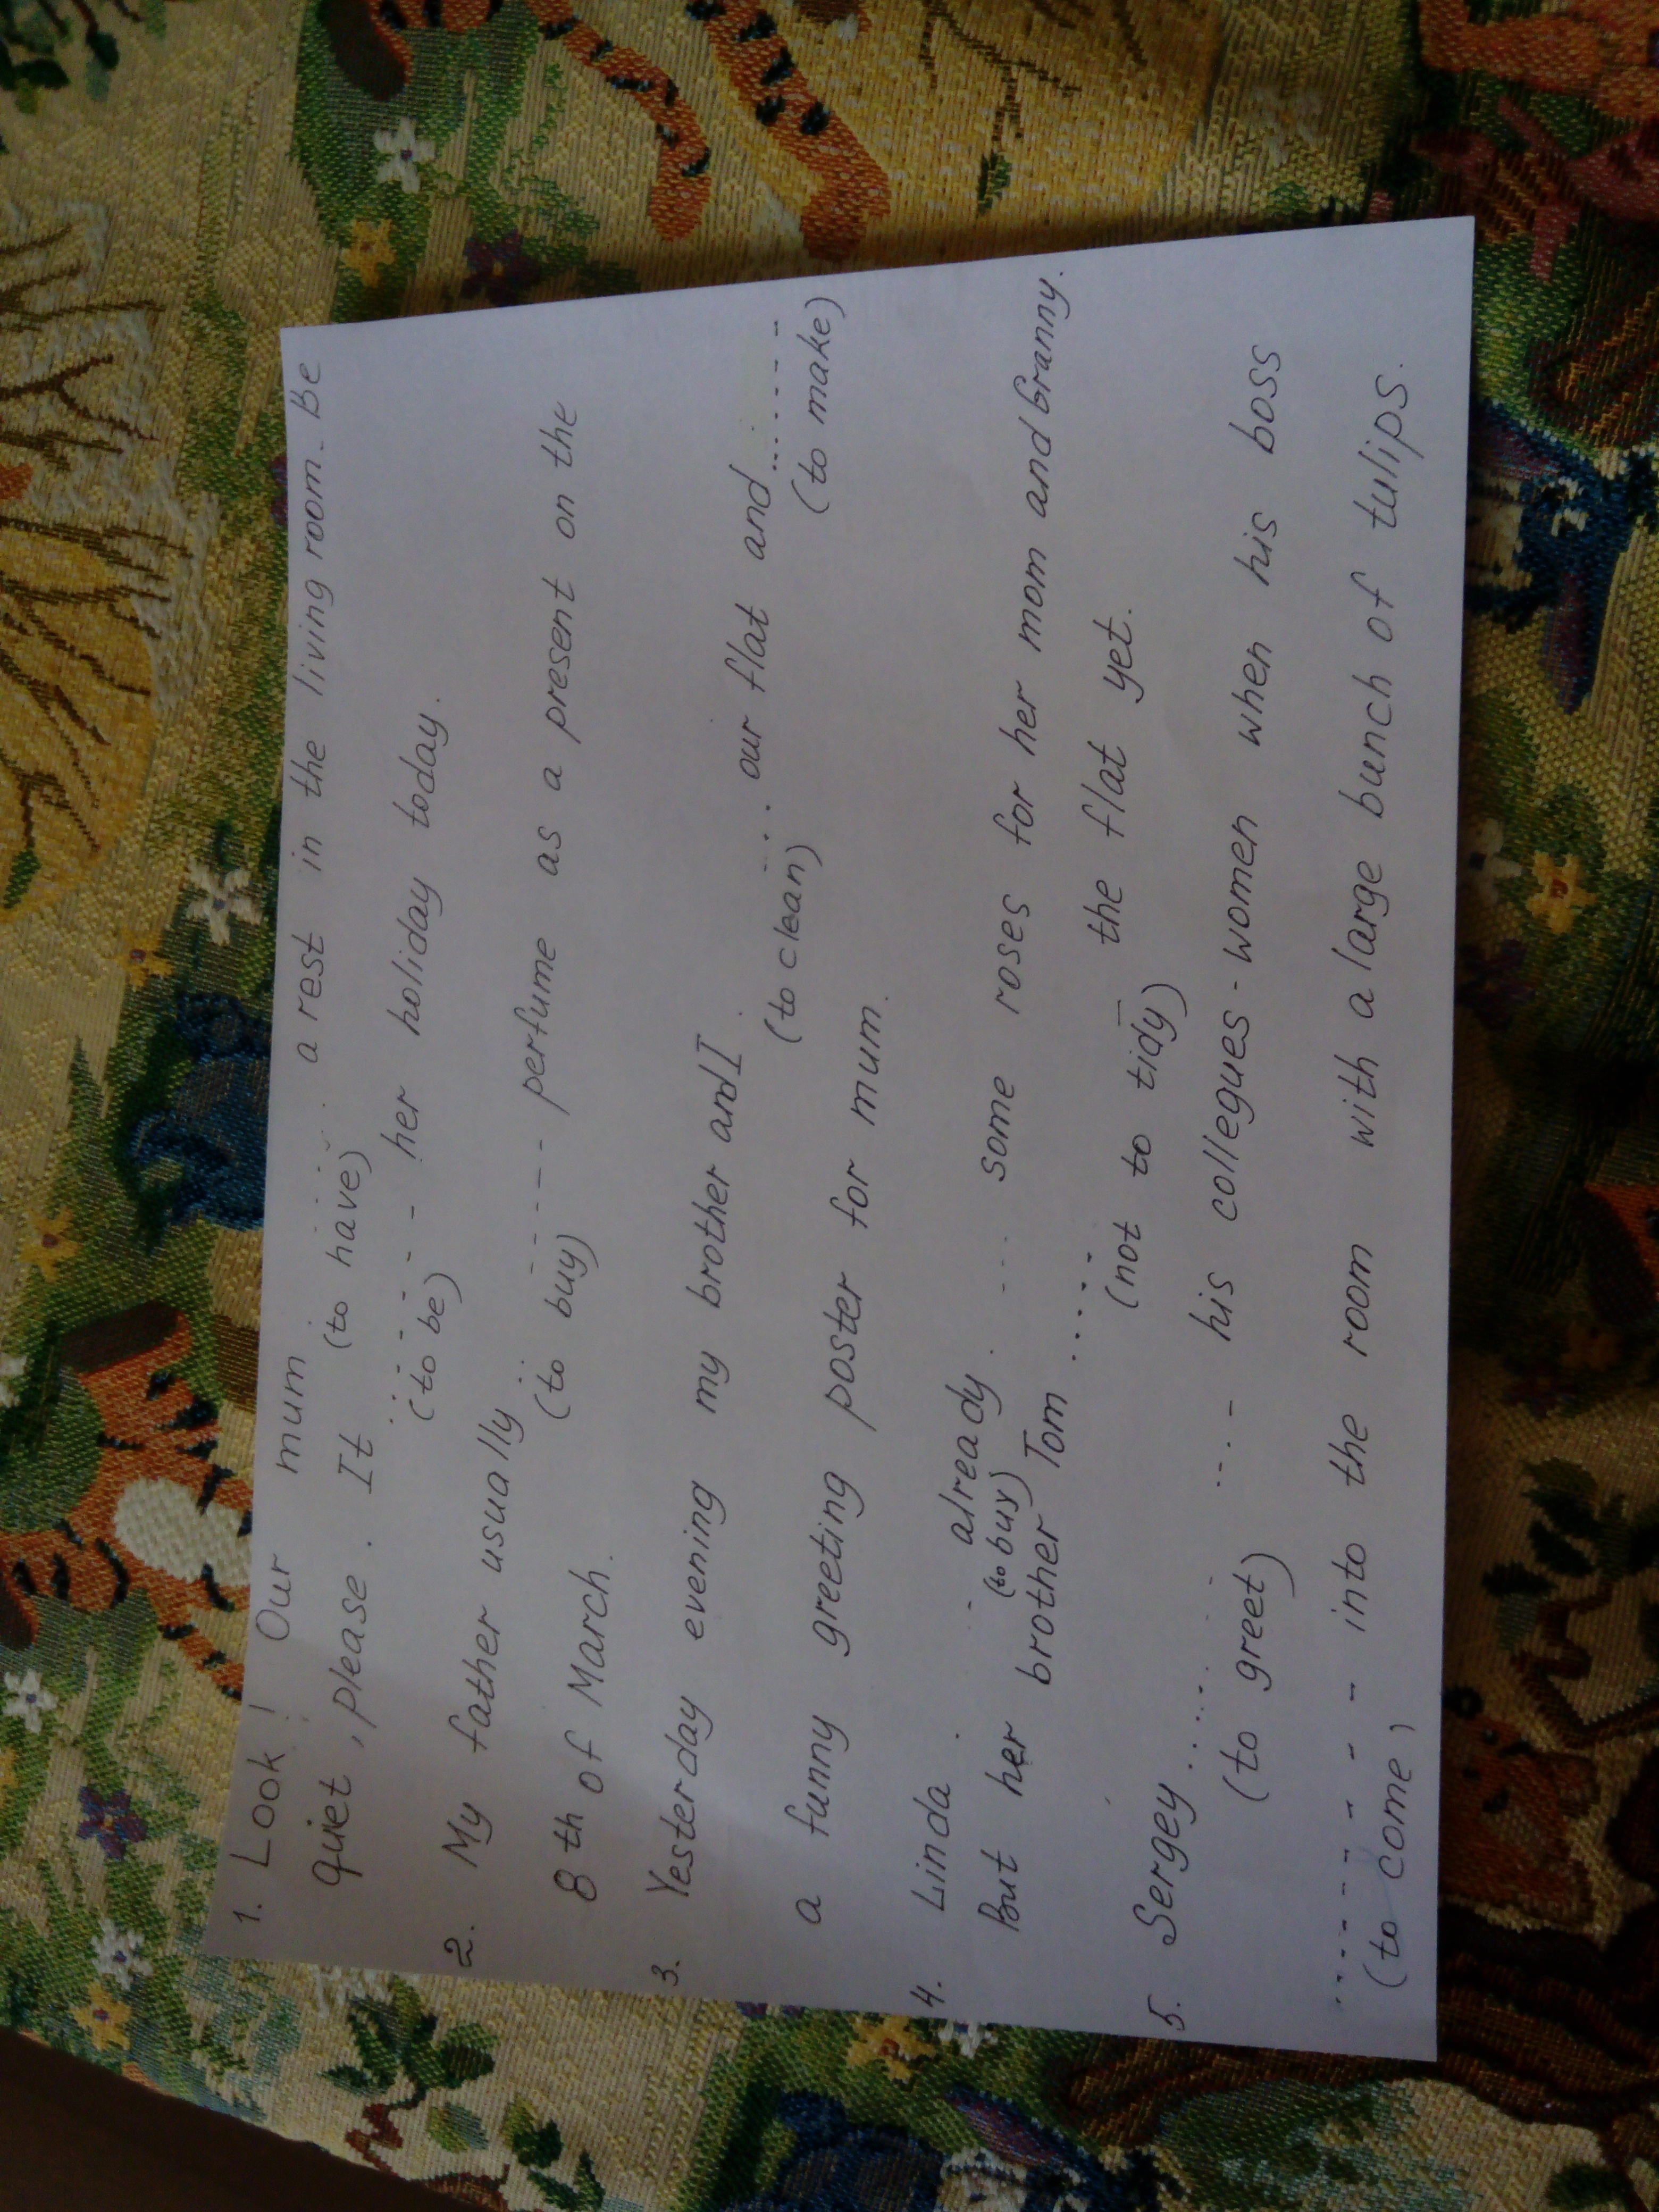 1. Look! Our mum ..... a rest in the living room. Be
(to have)
quiet, please. It ...... her holiday today.
(to be)
2. My father usually ...... perfume as a present on the
(to buy)
8th of March.
3. Yesterday evening my brother and I ..... our flat and .......
(to clean) (to make)
a funny greeting poster for mum.
4. Linda ... already ..... some roses for her mom and Granny.
(to buy)
But her brother Tom ..... the flat yet.
(not to tidy)
5. Sergey ......... his collegues-women when his boss
(to greet)
......... into the room with a large bunch of tulips.
(to come)